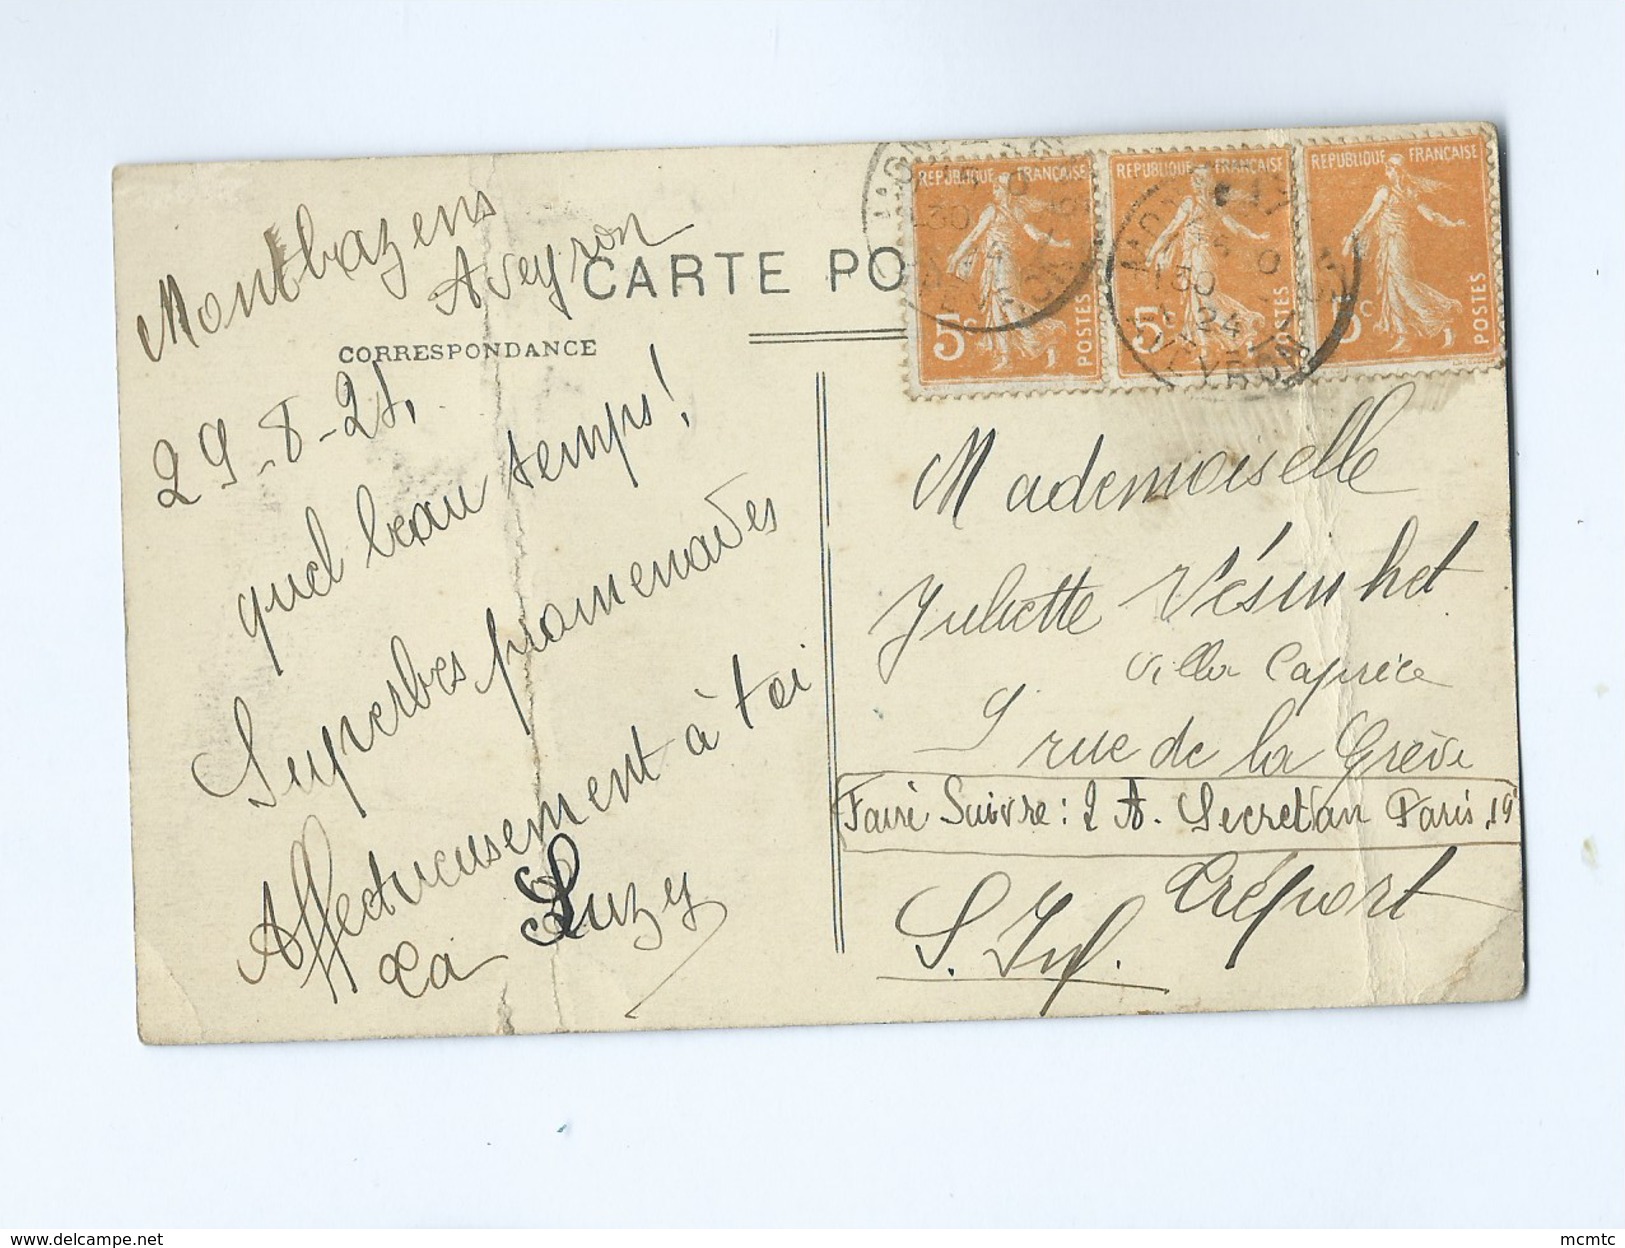 Montbazens
Aveyron
CARTE PO
CORRESPONDANCE
29-8-24.
quel beau temps!
Superbes promenades
Affectueusement à toi
La Suzy
REPUBLIQUE FRANÇAISE
5c
POSTES
REPUBLIQUE FRANÇAISE
5c
POSTES
REPUBLIQUE FRANÇAISE
5c
POSTES
30
24
AVEYRON
Mademoiselle
Juliette Vésinhet
Villa Caprice
5 rue de la Grève
Faire Suivre: 2 A. Secretan Paris, 19e
Tréport
S. Inf.
www.delcampe.net
mcmtc